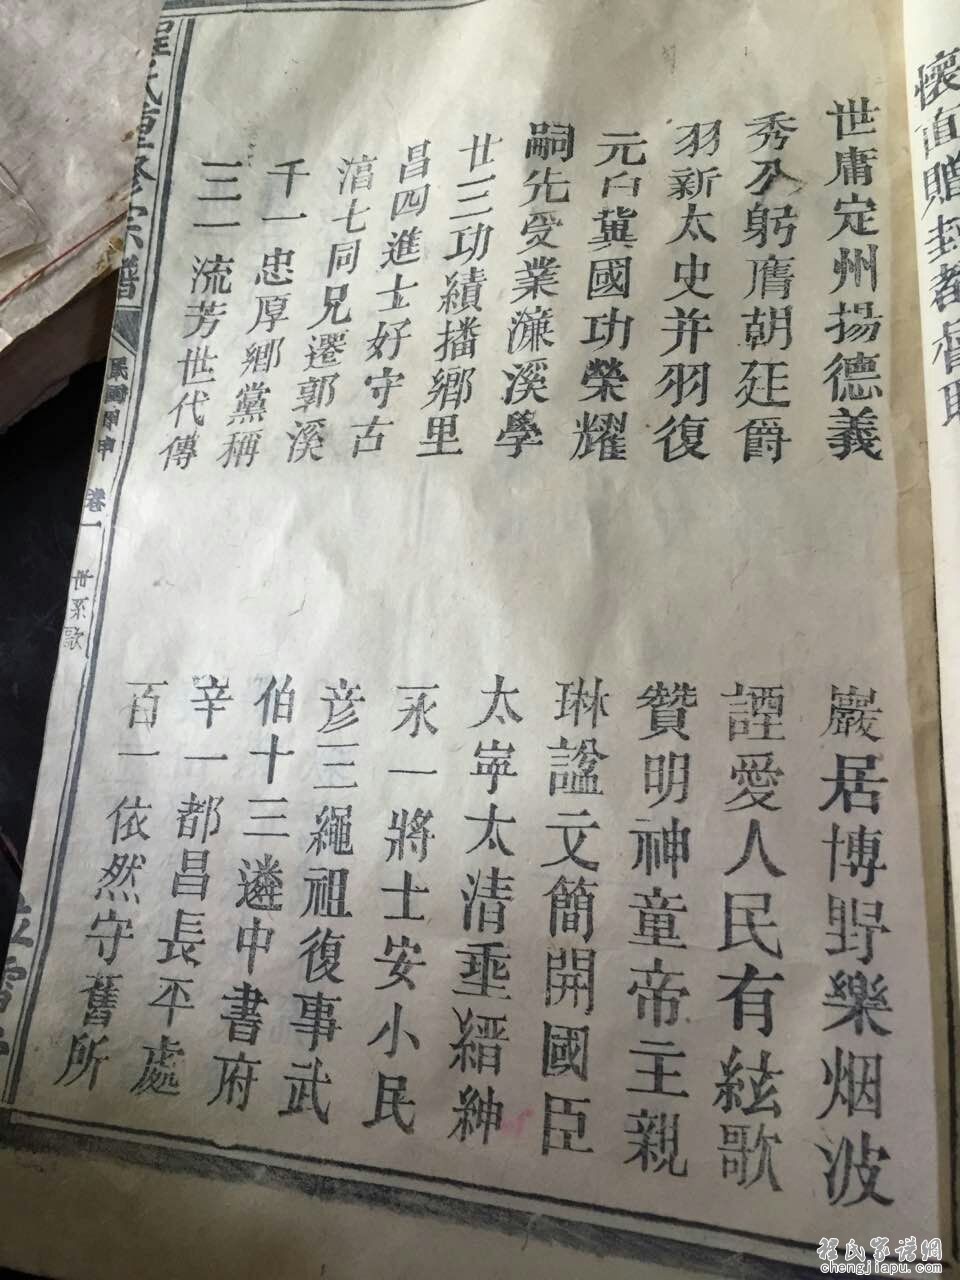 懷直贈封都督
世庸定州揚德義
巖居博野樂烟波
秀公躬膺朝廷爵
諲愛人民有絃歌
羽新太史并羽復
贊明神童帝主親
元白冀國功榮耀
琳諡文簡開國臣
嗣先受業濂溪學
太寧太清垂縉紳
廿三功績播鄉里
永一將士安小民
昌四進士好守古
彥三繩祖復事武
滈七同兄遷郭溪
伯十三遴中書府
千一忠厚鄉黨稱
辛一都昌長平處
一三一流芳世代傳
百一依然守舊所
程氏重修宗譜
民國甲申
卷一
世系歌
程氏家譜網
chengjiapu.com